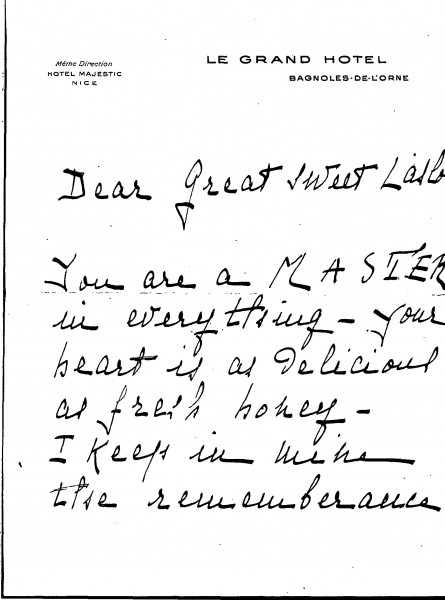 Même Direction
HOTEL MAJESTIC
NICE
LE GRAND HOTEL
BAGNOLES-DE-L'ORNE
Dear Great sweet Laslo
You are a MASTER
in everything - your
heart is as delicious
as fresh honey -
I keep in mine
the rememberance